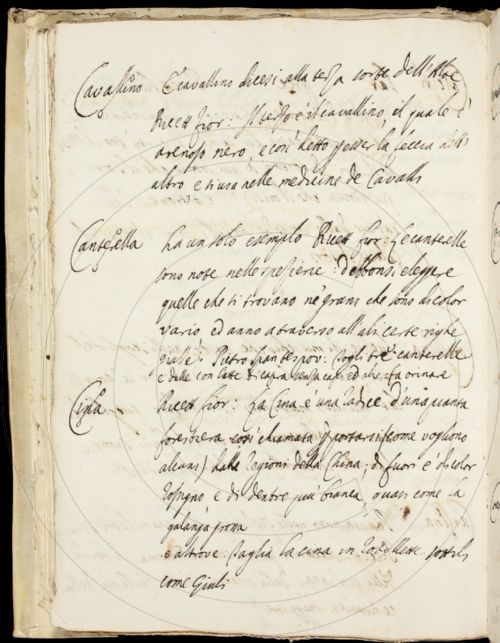 Cavallino E cavallino dicesi alla terza sorte dell'Aloe
Ricett fior: Il terzo è il cavallino, il quale è
arenoso nero, e così detto p esser la feccia dell'
altro e si usa nelle medicine de Cavalli
Canterella ha un solo esempio Ricett fior: Le canterelle
sono note nelle spezierie: debbonsi eleggere
quelle che si trovano ne' grani che sono di color
vario ed anno atraverso all'ali certe righe
gialle: Pietro Span tes pov: Togli tre canterelle
e dalle con latte di capra senza capi ed ali: fa orinare
Cina Ricett fior: La Cina è una radice d'una pianta
forestiera così chiamata p portarsi (come vogliono
alcuni) dalle regioni della China; di fuori è di color
rossigno e di dentro più bianca, quasi come la
galanga grossa
e altrove: Taglia la cina in rotellette sottili
come Giuli